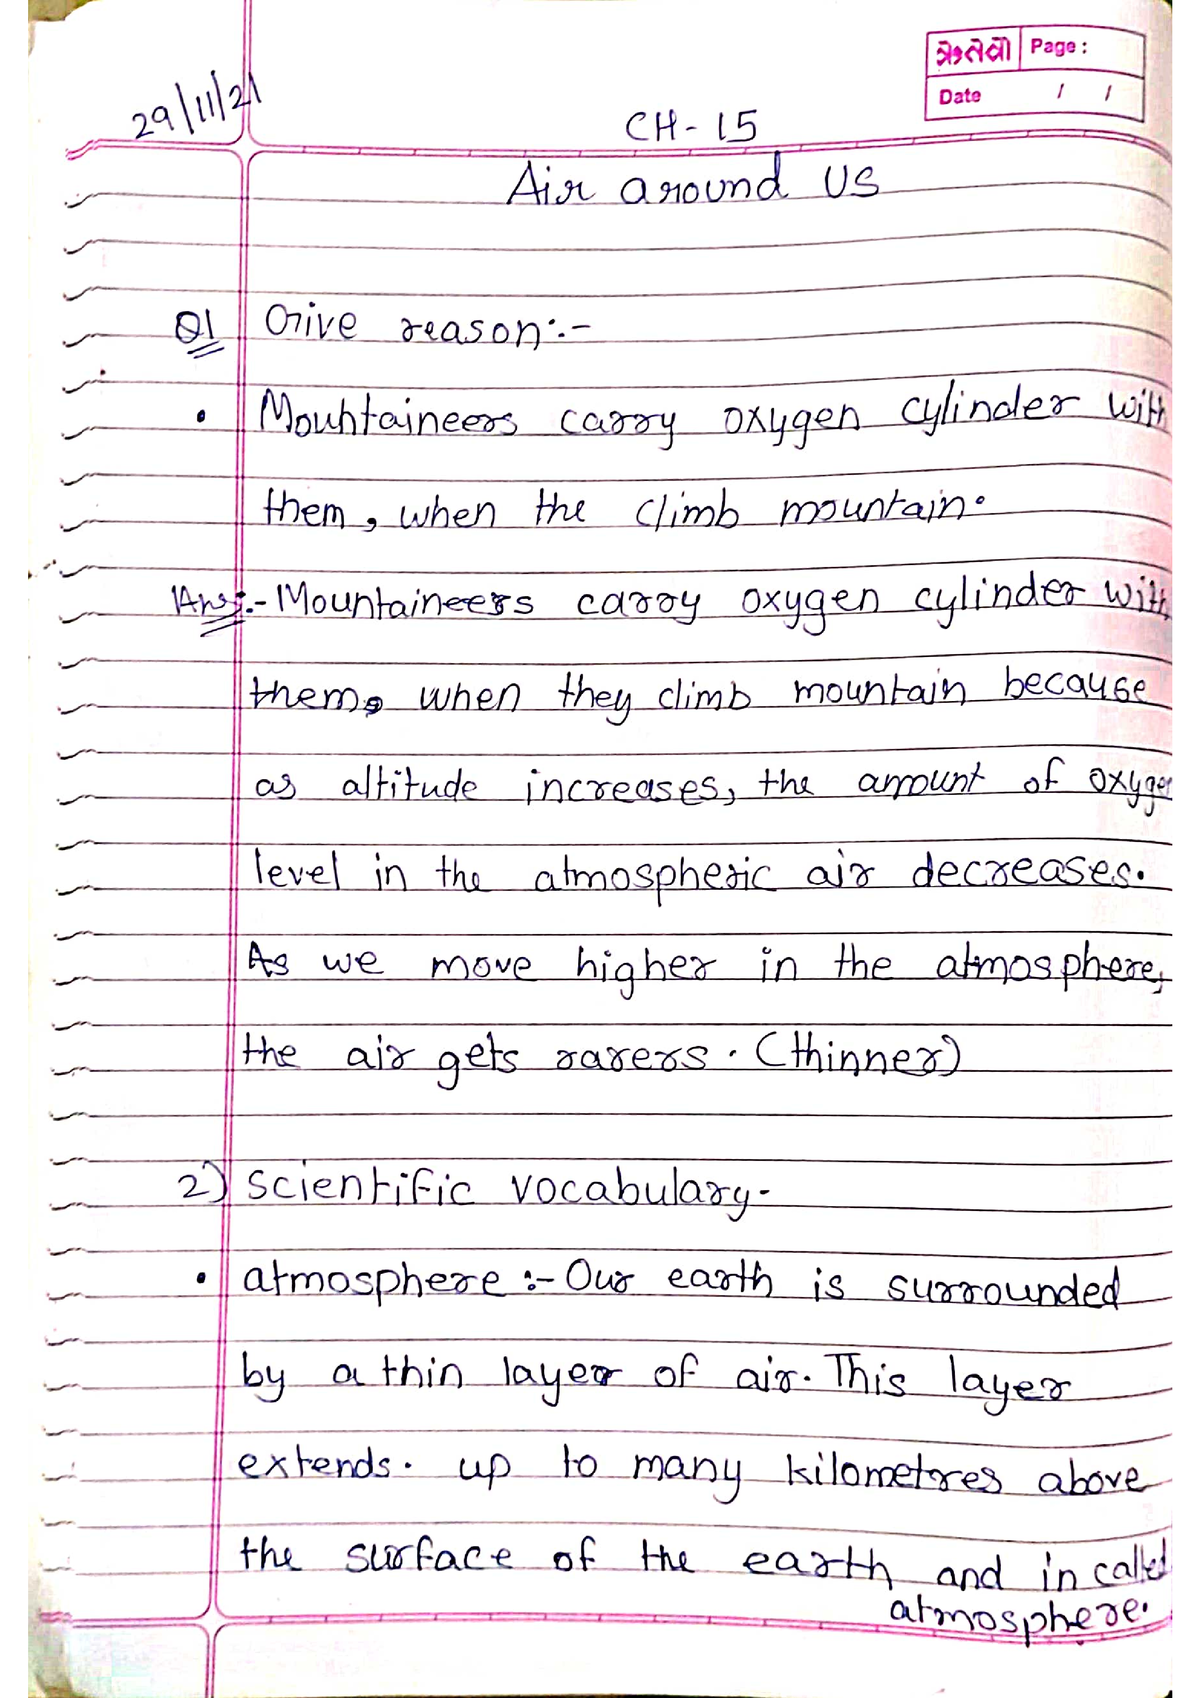 29/11/21
ૠતેવી Page :
Date / /
CH-15
Air around us
Q1 Give reason:-
• Mountaineers carry oxygen cylinder with
them, when the climb mountain.
Ans:- Mountaineers carry oxygen cylinder with
them, when they climb mountain because
as altitude increases, the amount of oxygen
level in the atmospheric air decreases.
As we move higher in the atmosphere,
the air gets rarers. (thinner)
2) scientific vocabulary-
• atmosphere :- Our earth is surrounded
by a thin layer of air. This layer
extends. up to many kilometres above
the surface of the earth and in called
atmosphere.